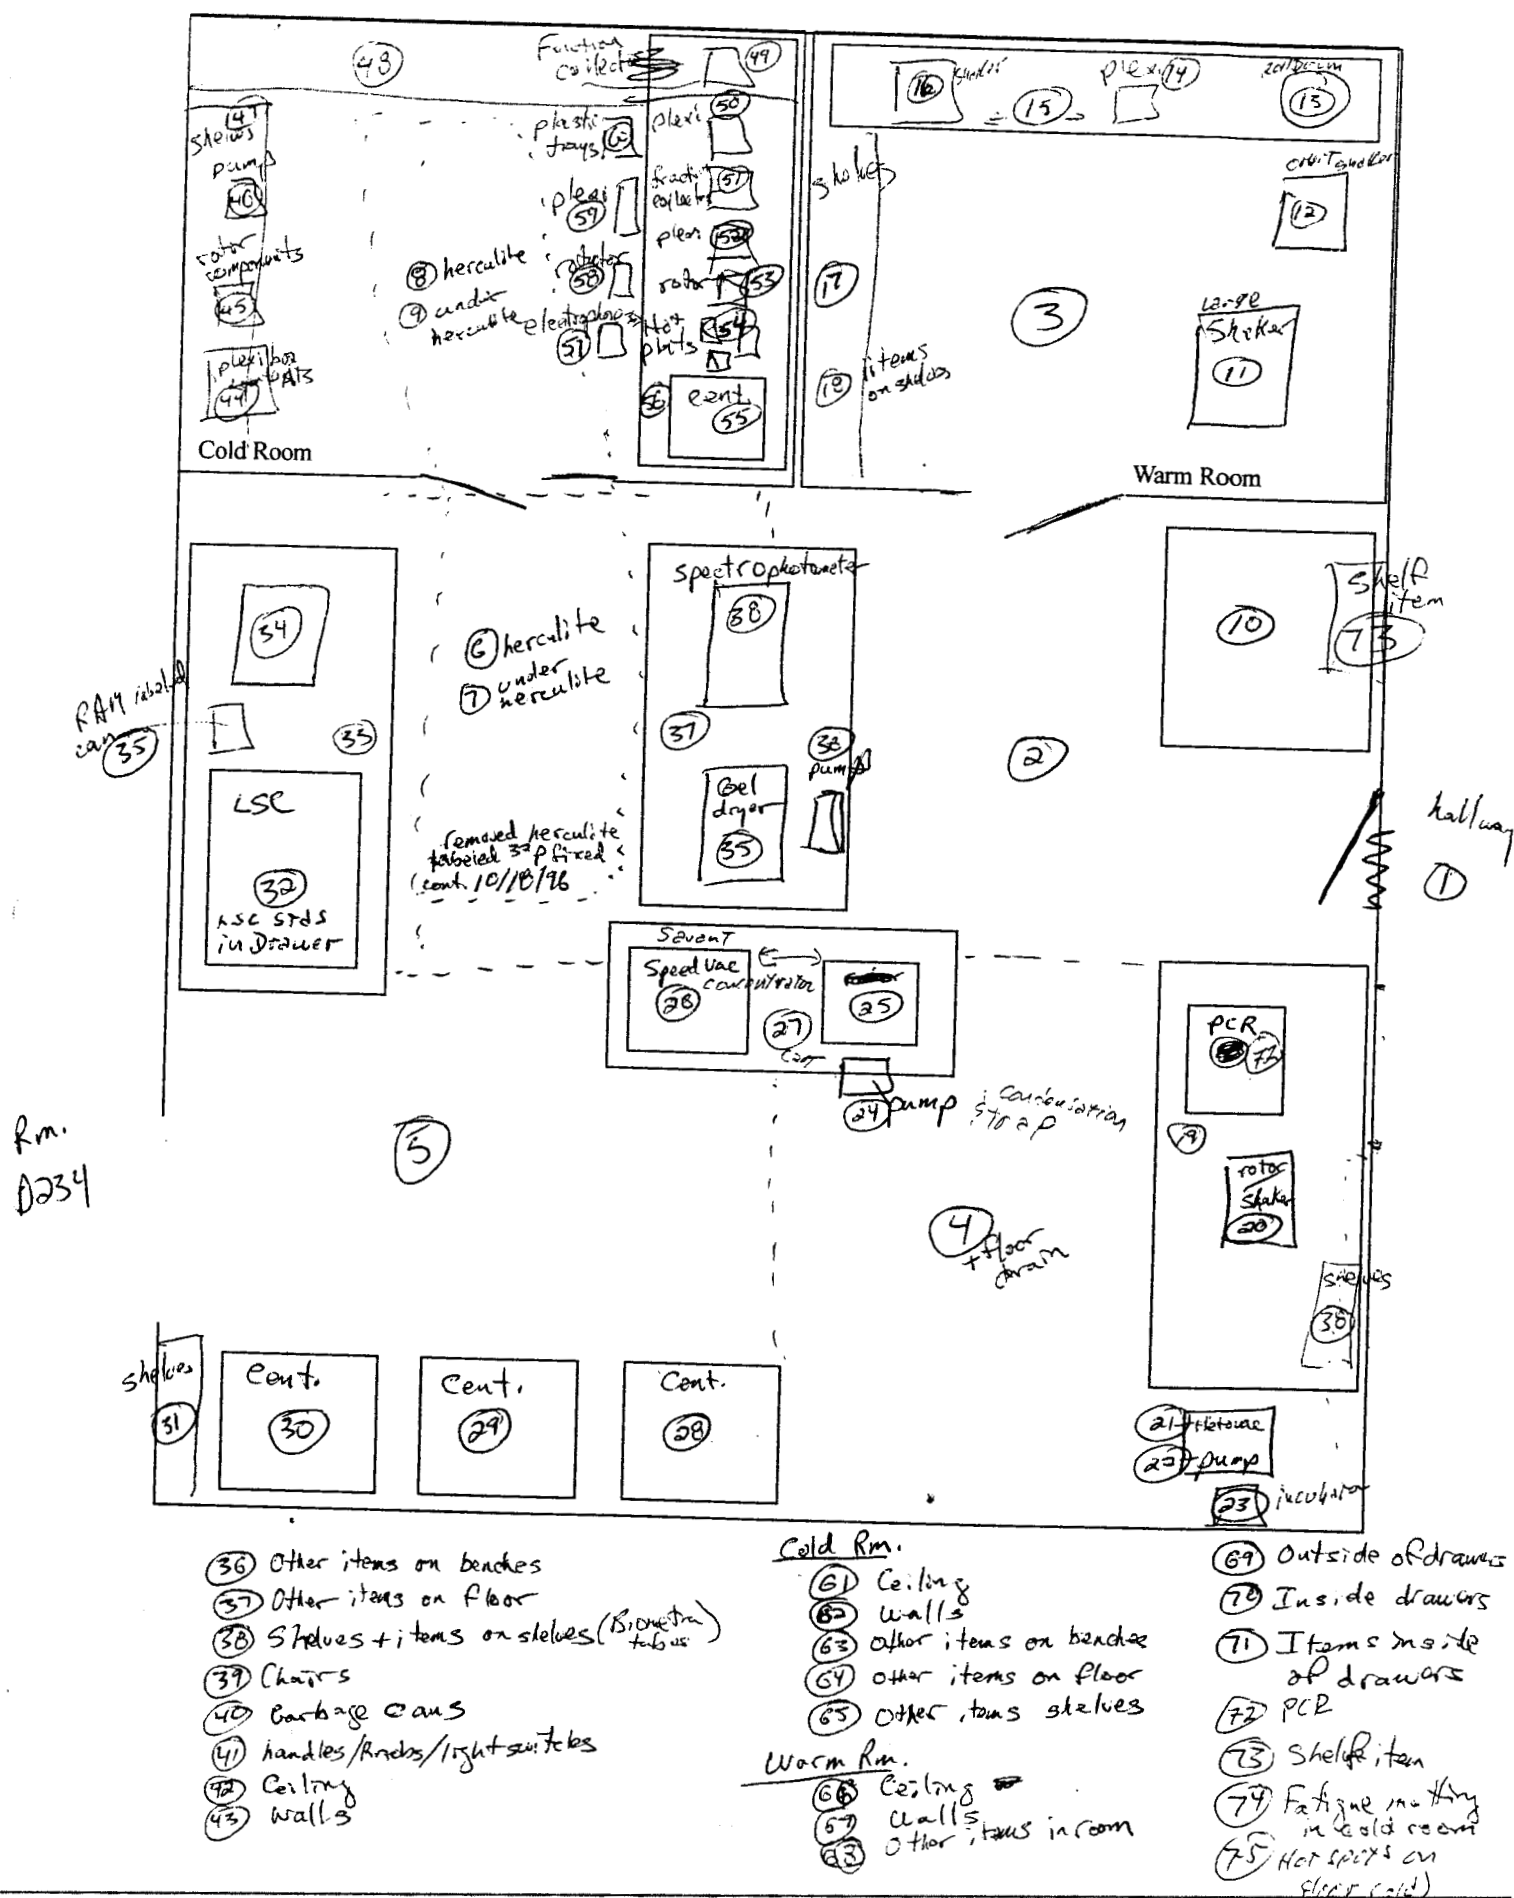 48
Function
collector
49
47
shelves
pump
46
rotor
components
45
plexi box
44
Cold Room
8 herculite
9 under
herculite
plastic
trays 60
plexi
59
rotator
58
electrophoresis
57
plexi
50
fraction
collector
51
plexi
52
rotor
53
Hot
plates
54
56
cent.
55
16
shaker
15
plexi 14
13
orbit shaker
12
shelves
17
18
items
on shelves
3
Large
Shaker
11
Warm Room
34
RAM labeled
can
35
33
LSC
32
LSC STDS
in Drawer
6 herculite
7 under
herculite
removed herculite
labeled 32P fixed
cont. 10/18/96
spectrophotometer
38
37
36
pump
Gel
dryer
35
2
10
Shelf
item
73
hallway
1
Savant
Speed Vac
concentrator
26
27
Cart
25
24
pump
condensation
trap
PCR
72
19
rotor
shaker
20
shelves
38
Rm.
D234
5
4
+ floor
drain
shelves
31
Cent.
30
Cent.
29
Cent.
28
21
22 pump
23 incubator
36 Other items on benches
37 Other items on floor
38 Shelves + items on shelves (Biometra
tubes)
39 Chairs
40 Garbage cans
41 handles/Knobs/lightswitches
42 Ceiling
43 walls
Cold Rm.
61 Ceiling
62 walls
63 other items on benches
64 other items on floor
65 Other items shelves
Warm Rm.
66 Ceiling
67 Walls
68 Other items in room
69 Outside of drawers
70 Inside drawers
71 Items inside
of drawers
72 PCR
73 Shelf item
74 Fatigue matting
in cold room
75 Hot spots on
floor (cold)